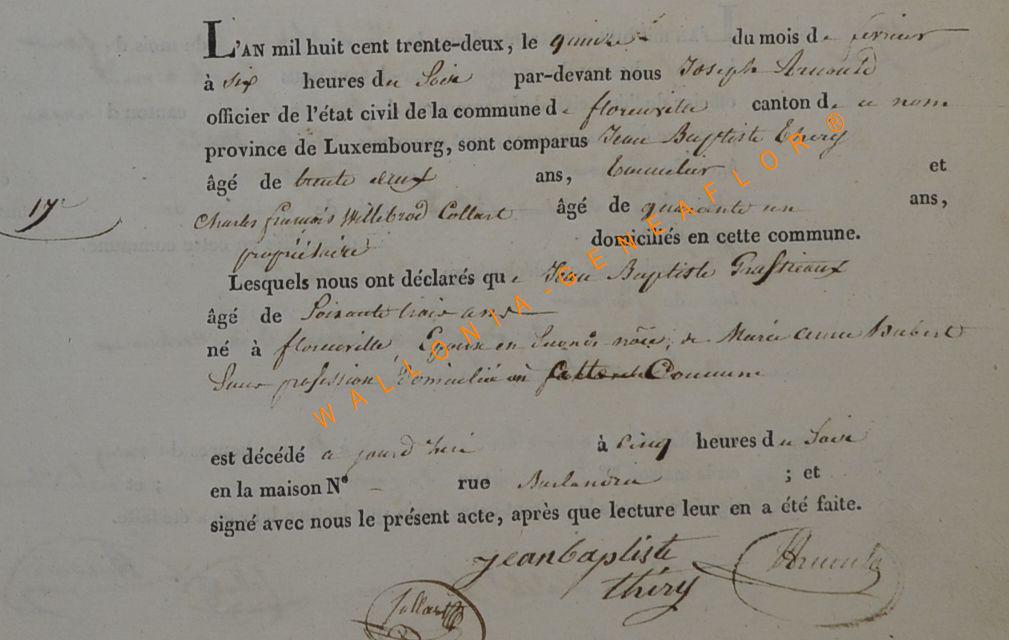 L'AN mil huit cent trente-deux, le quinze du mois de fevrier
à six heures du Soir par-devant nous Joseph
officier de l'état civil de la commune de florenville canton de ce nom
province de Luxembourg, sont comparus Jean Baptiste Thiry
âgé de trente deux ans, et
17e
Charles françois Willebrod Collart âgé de quarante un ans,
propriétaire domiciliés en cette commune.
Lesquels nous ont déclarés que Jean Baptiste
âgé de Soixante trois ans
né à florenville, Epoux en Secondes de Marie anne Hubert
Sans profession, domiciliée en cette Commune
est décédé aujourd'hui à cinq heures du Soir
en la maison N° - rue ; et
signé avec nous le présent acte, après que lecture leur en a été faite.
jeanbaptiste
thiry
Collart
WALLONIA-GENEAFLOR®